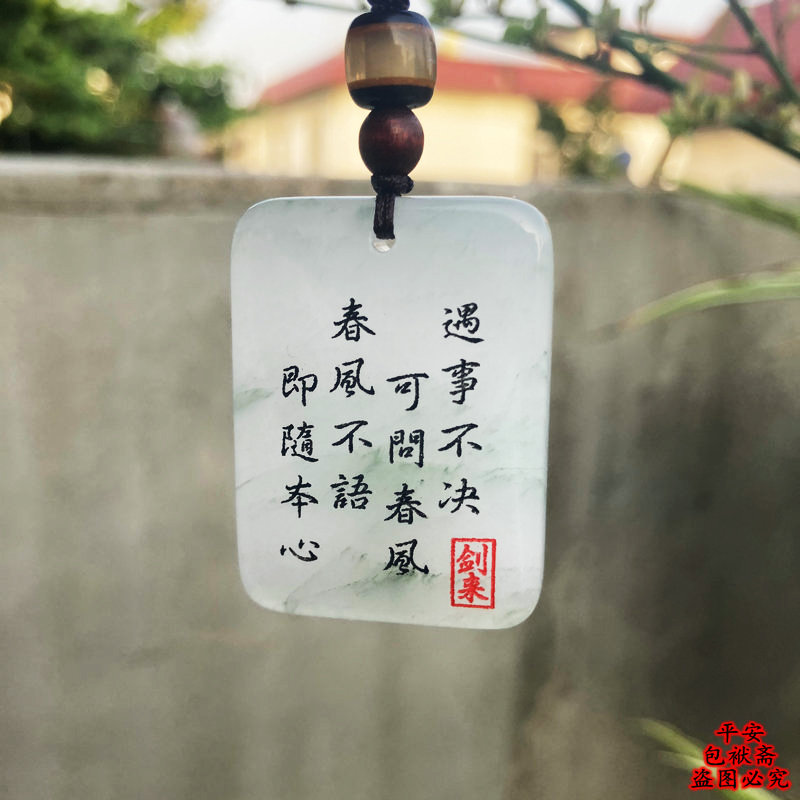 遇事不决
可問春風
春風不語
即隨本心
剑来
平安
包袱斋
盗图必究